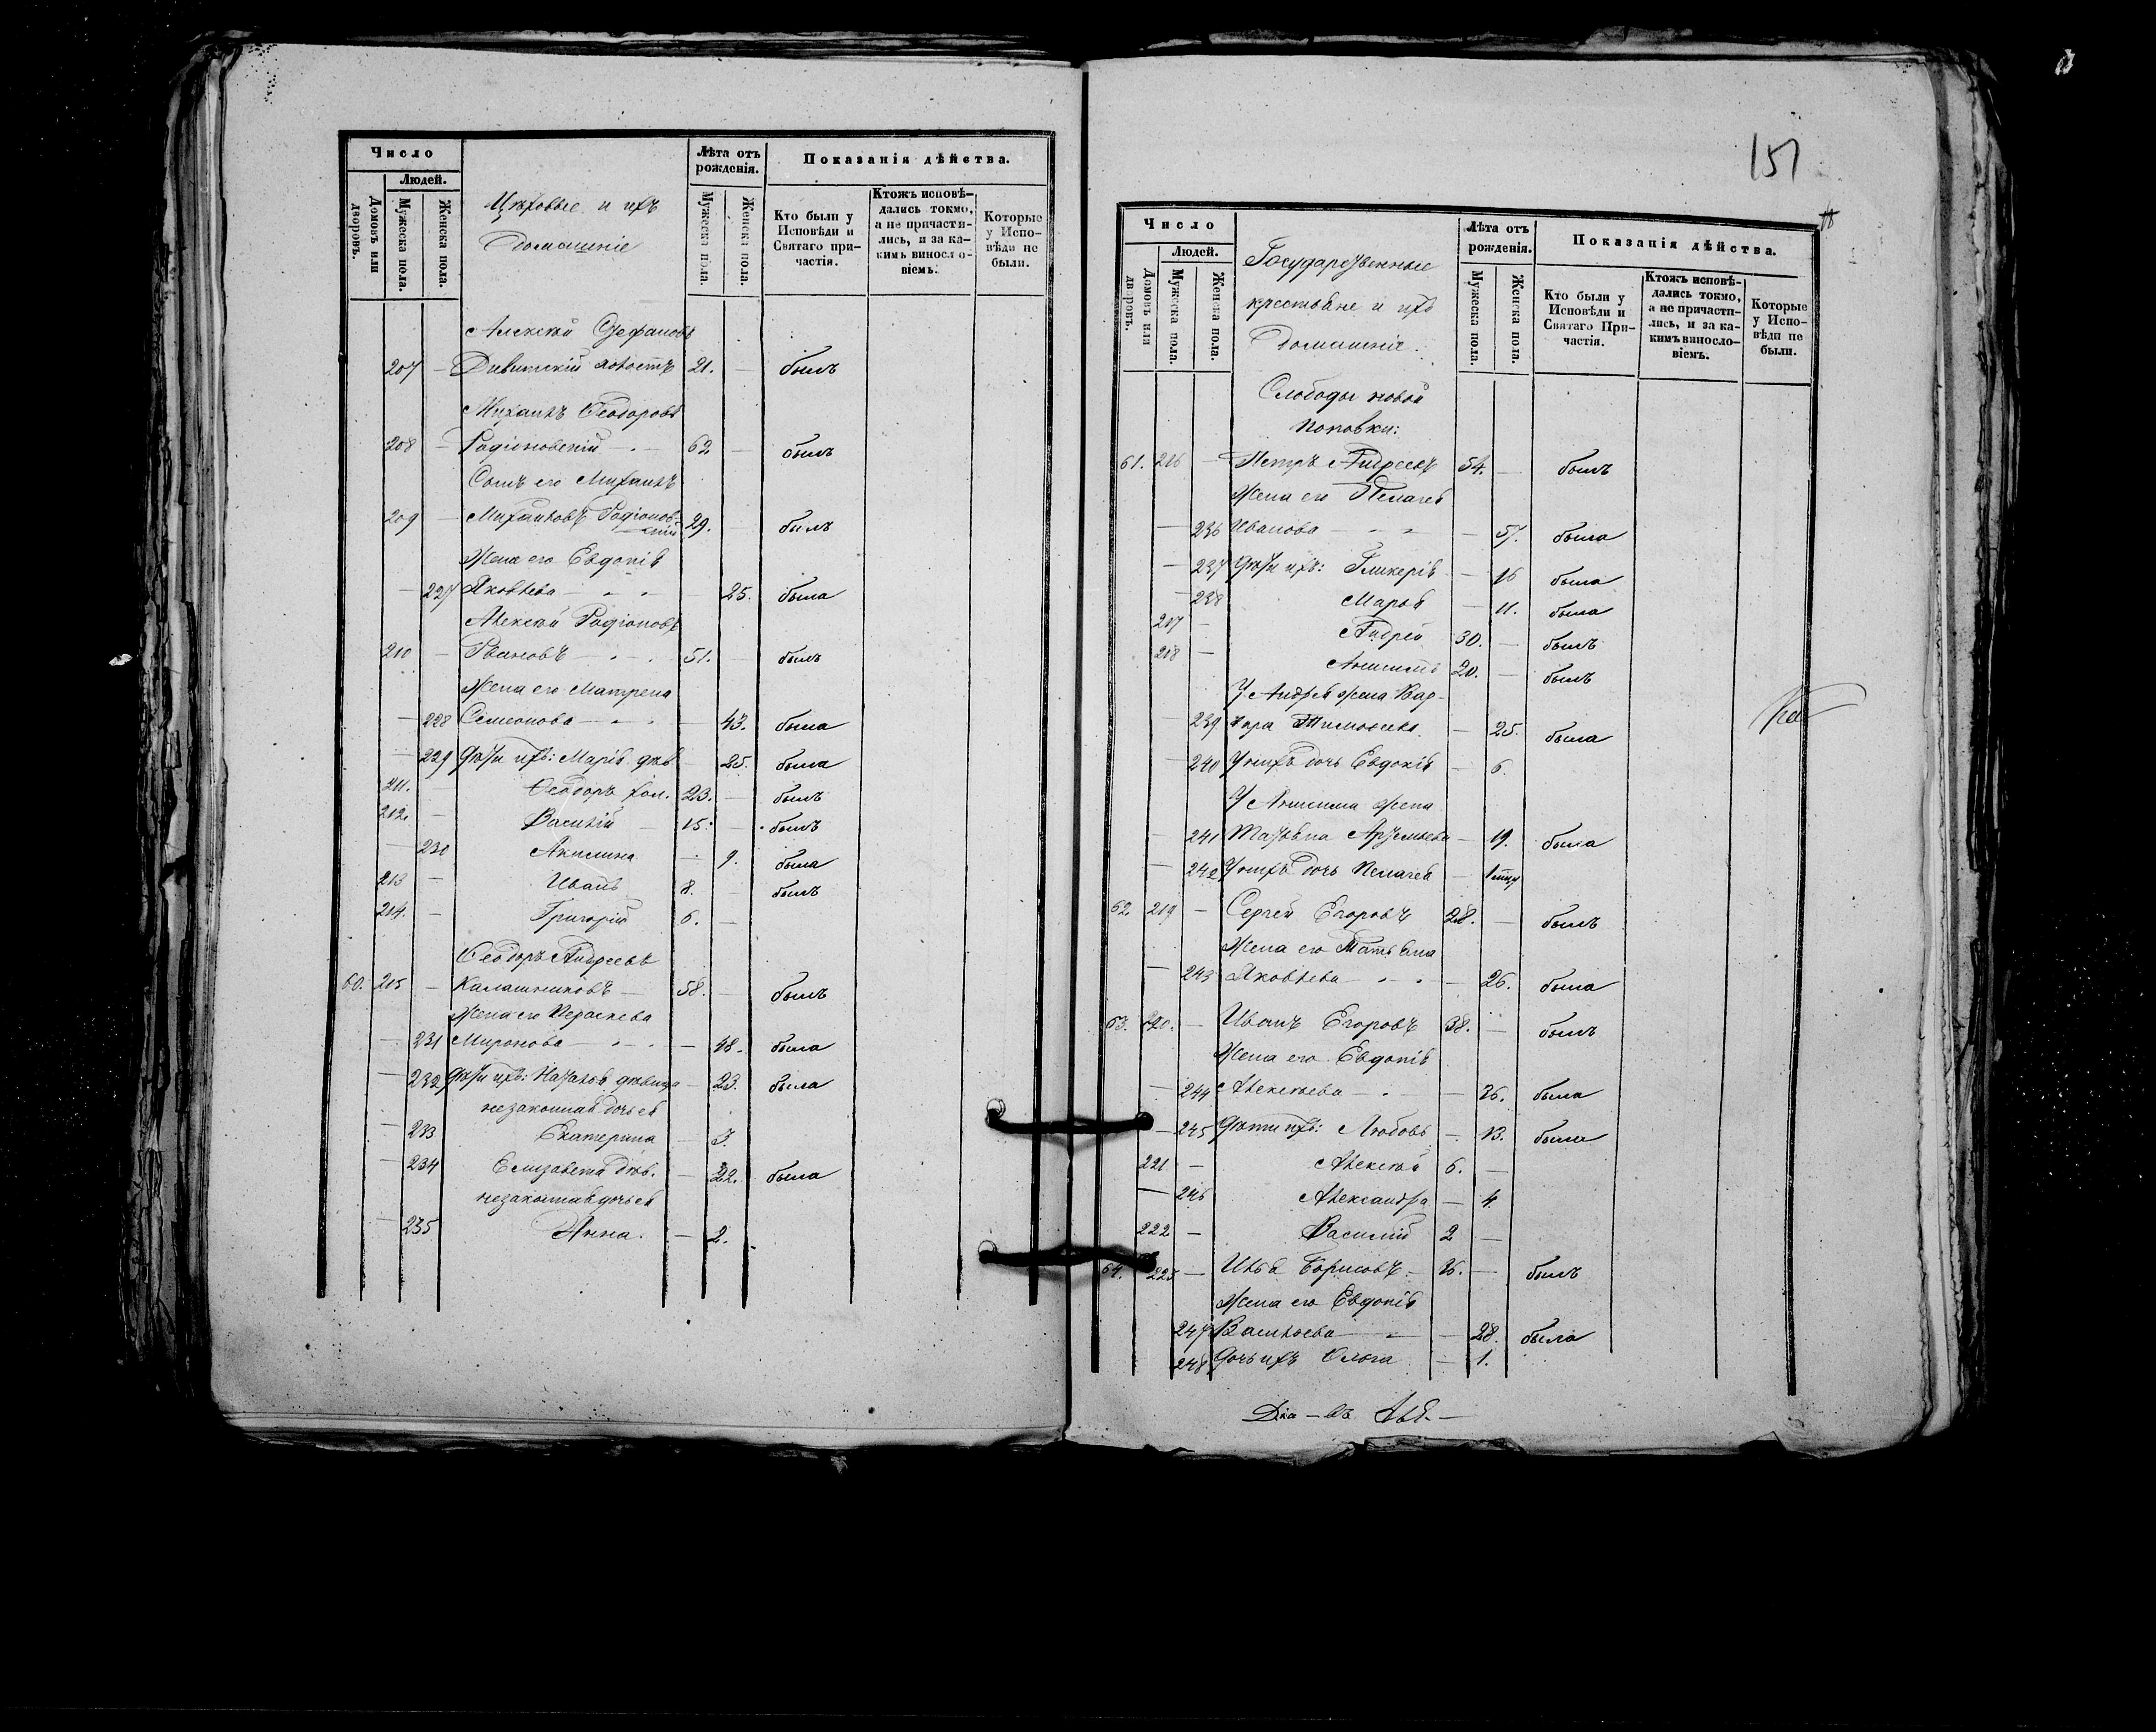 Число
Людей.
Домовъ или дворовъ.
Мужеска пола.
Женска пола.
Цѣховые и ихъ
Домашніе
Лѣта отъ рожденія.
Мужеска пола.
Женска пола.
Показанія дѣйства.
Кто были у Исповѣди и Святаго причастія.
Ктожъ исповѣдались токмо, а не причастились, и за какимъ винословіемъ.
Которые у Исповѣди не были.
Алексѣй Стефановъ
207 — Дивитскій холостъ 21. — былъ
Михаилъ Ѳеодоровъ
208 — Родіоновскій — 62 — былъ
Сынъ его Михаилъ
209 — Михаиловъ Родіоновскій 29. — былъ
Жена его Евдокія
— 227 Яковлева — 25. была
Алексѣй Родіоновъ
210 — Ивановъ — 51. — былъ
Жена его Матрена
— 228 Симеонова — — 43. была
— 229 Дѣти ихъ: Марія дѣв. — 25. была
211. — Ѳеодоръ хол. 23. — былъ
212. — Василій — 15. — былъ
— 230 Акилина — 9. была
213 — Иванъ 8. — былъ
214. — Григорій 6. —
Ѳеодоръ Андреевъ
60. 215 — Калашниковъ — 58. — былъ
Жена его Параскева
— 231 Миронова — — 48. была
— 232 Дѣти ихъ: Наталія дѣвица — 23. была
незаконная дочь ея
— 233 Екатерина — 3
— 234 Елизавета дѣв. — 22. была
незаконная дочь ея
— 235 Анна. — 2.
151
Число
Людей.
Домовъ или дворовъ.
Мужеска пола.
Женска пола.
Государственные
крестьяне и ихъ
Домашніе.
Лѣта отъ рожденія.
Мужеска пола.
Женска пола.
Показанія дѣйства.
Кто были у Исповѣди и Святаго Причастія.
Ктожъ исповѣдались токмо, а не причастились, и за какимъ винословіемъ.
Которые у Исповѣди не были.
Слободы новой
Поповки:
61. 216 — Петръ Андреевъ 54. — былъ
Жена его Пелагея
— 236 Иванова — — 57. была
— 237 Дѣти ихъ: Гликерія — 16 была
— 238 Марья — 11. была
217 — Андрей 30. — былъ
218 — Анисимъ 20. — былъ
У Андрея жена Вар-
239 вара Тимоѳеева — 25. была
— 240 У нихъ дочь Евдокія — 6.
У Анисима жена
— 241 Татьяна Артемьева — 19. была
— 242 У нихъ дочь Пелагея — 1
62. 219 — Сергей Егоровъ 28. — былъ
Жена его Татьяна
— 243 Яковлева — — 26. была
63. 220. — Иванъ Егоровъ 38. — былъ
Жена его Евдокія
— 244 Алексѣева — — 36. была
— 245 Дѣти ихъ: Любовь — 13. была
221 — Алексѣй 6. —
— 246 Александра — 4.
222 — Василій 2 —
64. 223 — Илья Борисовъ — 36. — былъ
Жена его Евдокія
247 Васильева — — 28. была
248 Дочь ихъ Ольга — 1.